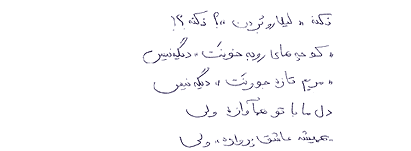 نکنه « لیلا رو بردن »؟ نکنه ؟!
« کوچه های روبه خونت » دیگه نیس
« مریم تازه » دیگه نیس
دل ما با تو هم آوازه ولی
همیشه عاشق پروازه ، ولی